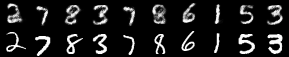 2 7 8 3 7 8 6 1 5 3
2 7 8 3 7 8 6 1 5 3